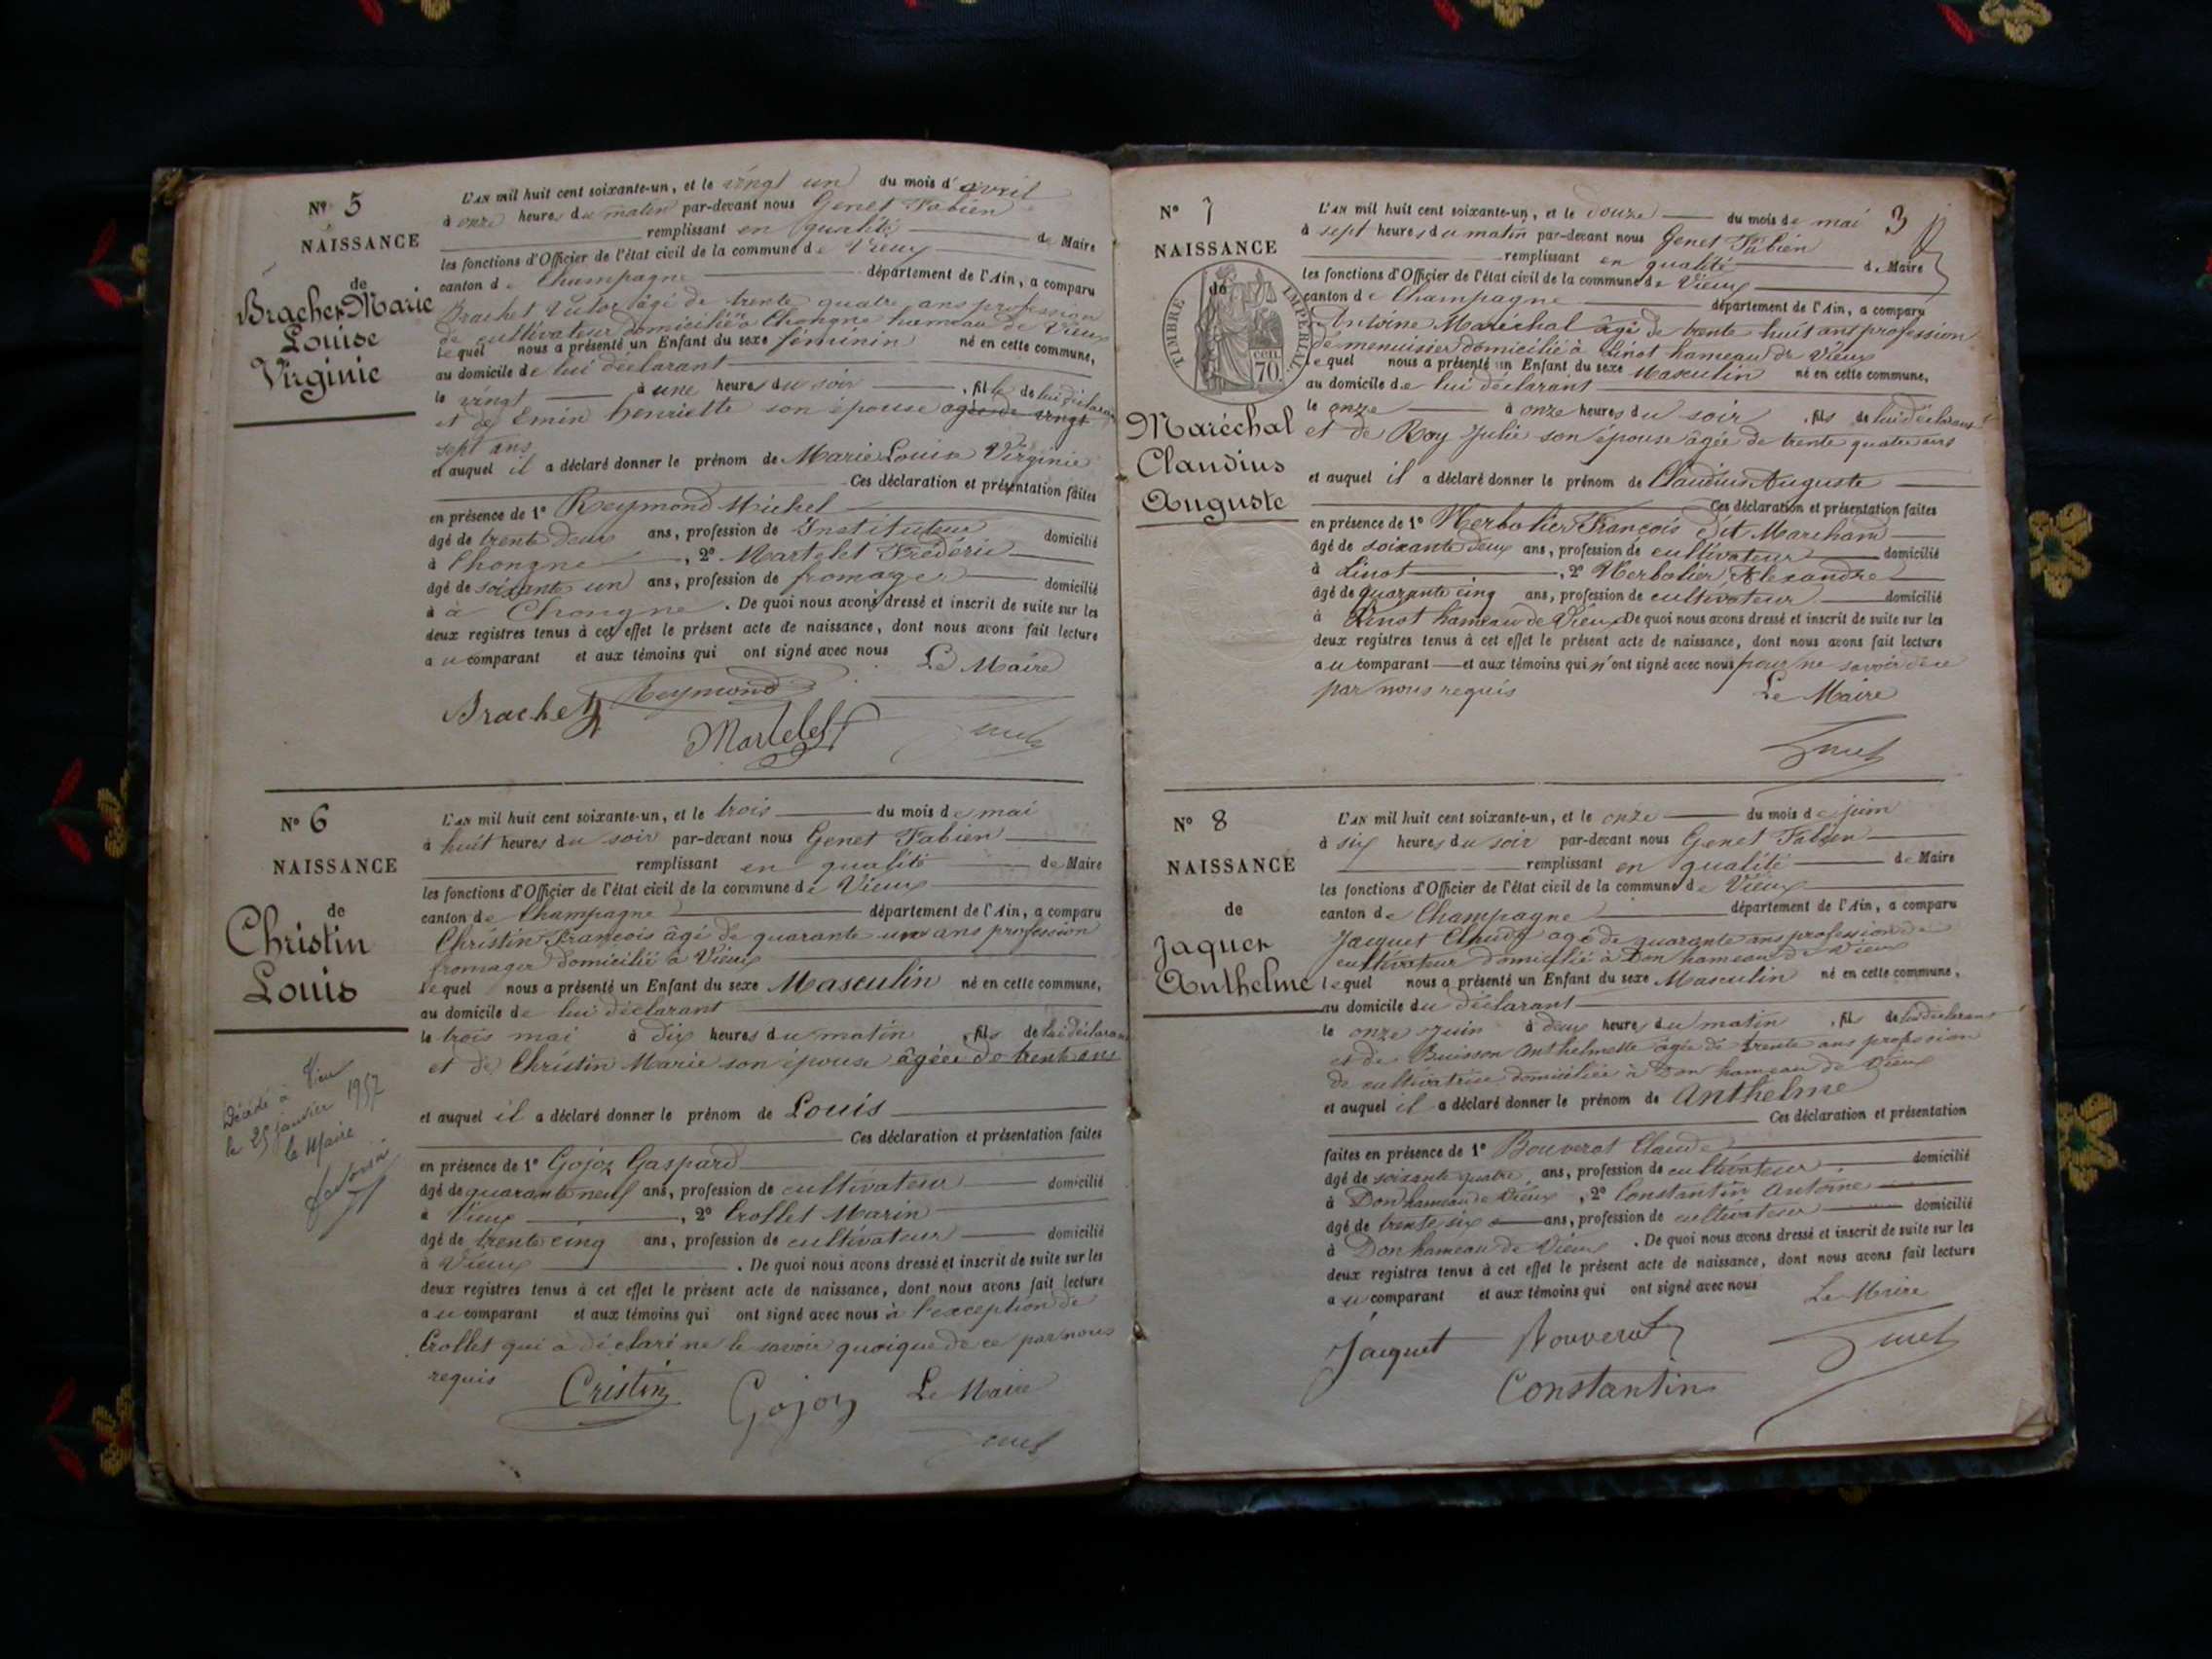 Nº 5
NAISSANCE
de
Brachet Marie
Louise
Virginie
L'AN mil huit cent soixante-un, et le vingt un du mois d'avril
à onze heures du matin par-devant nous Genet Fabien
remplissant en qualité de Maire
les fonctions d'Officier de l'état civil de la commune de Vieux
canton de Champagne département de l'Ain, a comparu
Brachet Victor âgé de trente quatre ans profession
de cultivateur domicilié à Chongne hameau de Vieux
lequel nous a présenté un Enfant du sexe féminin né en cette commune,
au domicile de lui déclarant
le vingt à une heures du soir, fille de lui déclarant
et de Emin henriette son épouse agée de vingt
sept ans
et auquel il a déclaré donner le prénom de Marie Louise Virginie
Ces déclaration et présentation faites
en présence de 1º Reymond Michel
âgé de trente deux ans, profession de Instituteur domicilié
à Chongne, 2º Martelet Frédéric
âgé de soixante un ans, profession de fromager domicilié
à à Chongne. De quoi nous avons dressé et inscrit de suite sur les
deux registres tenus à cet effet le présent acte de naissance, dont nous avons fait lecture
au comparant et aux témoins qui ont signé avec nous Le Maire
Brachet Reymond
Martelet Genet
Nº 6
NAISSANCE
de
Christin
Louis
Décédé à Vieu
le 25 janvier 1957
le Maire
L'AN mil huit cent soixante-un, et le trois du mois de mai
à huit heures du soir par-devant nous Genet Fabien
remplissant en qualité de Maire
les fonctions d'Officier de l'état civil de la commune de Vieux
canton de Champagne département de l'Ain, a comparu
Christin François âgé de quarante un ans profession
fromager domicilié à Vieux
lequel nous a présenté un Enfant du sexe Masculin né en cette commune,
au domicile de lui déclarant
le trois mai à dix heures du matin, fils de lui déclarant
et de Christin Marie son épouse âgée de trente ans
et auquel il a déclaré donner le prénom de Louis
Ces déclaration et présentation faites
en présence de 1º Gojoz Gaspard
âgé de quarante neuf ans, profession de cultivateur domicilié
à Vieux, 2º Crollet Marin
âgé de trente cinq ans, profession de cultivateur domicilié
à Vieux. De quoi nous avons dressé et inscrit de suite sur les
deux registres tenus à cet effet le présent acte de naissance, dont nous avons fait lecture
au comparant et aux témoins qui ont signé avec nous à l'exception de
Crollet qui a déclaré ne le savoir quoique de ce par nous
requis
Cristin Gojoz Le Maire
Genet
3
Nº 7
NAISSANCE
de
TIMBRE IMPERIAL
cen.
70.
Maréchal
Claudius
Auguste
L'AN mil huit cent soixante-un, et le douze du mois de mai
à sept heures du matin par-devant nous Genet Fabien
remplissant en qualité de Maire
les fonctions d'Officier de l'état civil de la commune de Vieux
canton de Champagne département de l'Ain, a comparu
Antoine Maréchal âgé de trente huit ans profession
de menuisier domicilié à Linot hameau de Vieux
lequel nous a présenté un Enfant du sexe Masculin né en cette commune,
au domicile de lui déclarant
le onze à onze heures du soir, fils de lui déclarant
et de Roy Julie son épouse âgée de trente quatre ans
et auquel il a déclaré donner le prénom de Claudius Auguste
Ces déclaration et présentation faites
en présence de 1º Herbolier François dit Marchand
âgé de soixante deux ans, profession de cultivateur domicilié
à Linot, 2º Herbolier Alexandre
âgé de quarante cinq ans, profession de cultivateur domicilié
à Linot hameau de Vieux De quoi nous avons dressé et inscrit de suite sur les
deux registres tenus à cet effet le présent acte de naissance, dont nous avons fait lecture
au comparant et aux témoins qui n'ont signé avec nous pour ne savoir de ce
par nous requis Le Maire
Genet
Nº 8
NAISSANCE
de
Jaquet
Anthelme
L'AN mil huit cent soixante-un, et le onze du mois de juin
à six heures du soir par-devant nous Genet Fabien
remplissant en qualité de Maire
les fonctions d'Officier de l'état civil de la commune de Vieux
canton de Champagne département de l'Ain, a comparu
Jacquet Claude agé de quarante ans profession de
cultivateur domicilié à Don hameau de Vieux
lequel nous a présenté un Enfant du sexe Masculin né en cette commune,
au domicile du déclarant
le onze Juin à deux heures du matin, fils de lui déclarant
et de Buisson Anthelmette âgée de trente ans profession
de cultivatrice domiciliée à Don hameau de Vieux
et auquel il a déclaré donner le prénom de Anthelme
Ces déclaration et présentation
faites en présence de 1º Bouverat Claude
âgé de soixante quatre ans, profession de cultivateur domicilié
à Don hameau de Vieux, 2º Constantin Antoine
âgé de trente six ans, profession de cultivateur domicilié
à Don hameau de Vieux. De quoi nous avons dressé et inscrit de suite sur les
deux registres tenus à cet effet le présent acte de naissance, dont nous avons fait lecture
au comparant et aux témoins qui ont signé avec nous Le Maire
Jaquet Bouverat Genet
Constantin